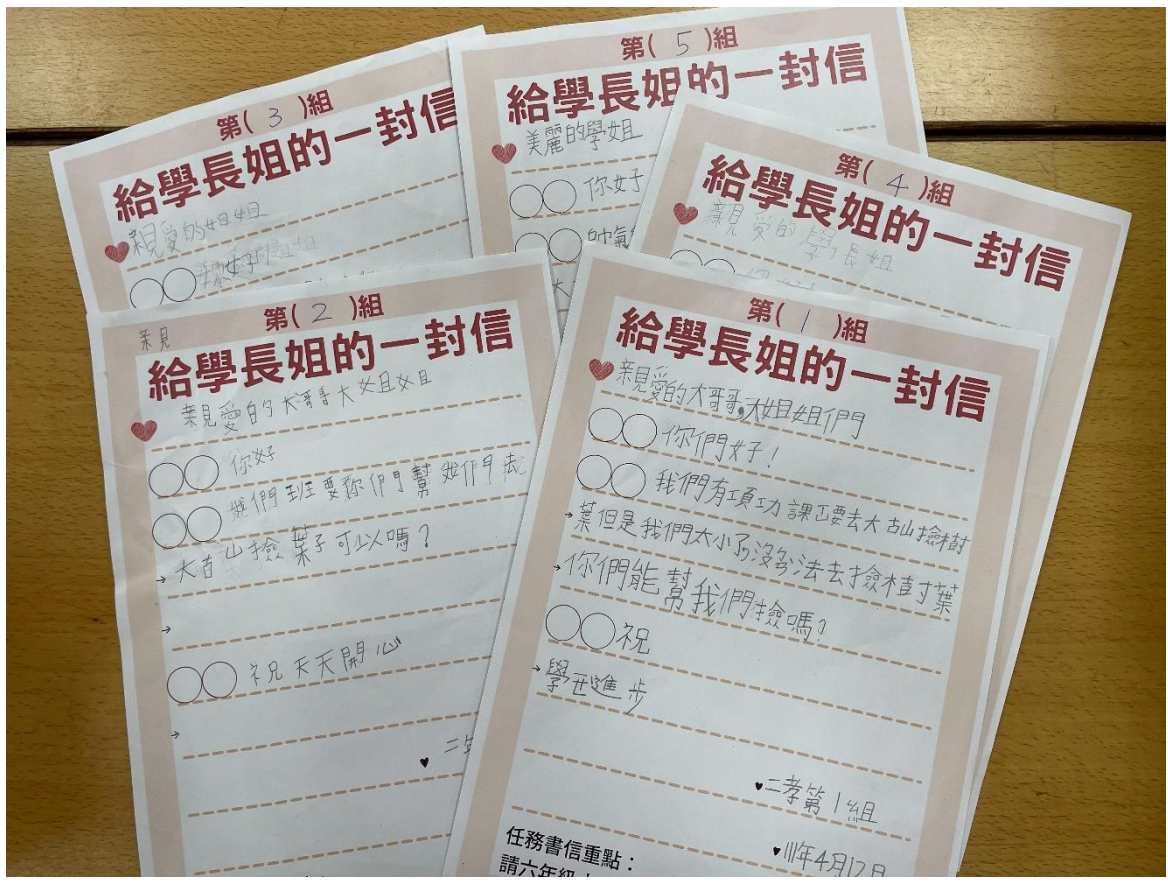 第( 3 )組
給學長姐的一封信
親愛的姐姐
第( 5 )組
給學長姐的一封信
美麗的學姐
你好
帥氣
第( 4 )組
給學長姐的一封信
親愛的學長姐
第( 2 )組
親
給學長姐的一封信
親愛的大哥哥大姐姐
你好
我們班要你們幫我們去
大古山撿葉子可以嗎？
祝天天開心
二
第( 1 )組
給學長姐的一封信
親愛的大哥哥,大姐姐們
你們好！
我們有項功課正要去大古山撿樹
葉但是我們太小了沒辦法去撿樹葉
你們能幫我們撿嗎？
祝
學
進步
二孝第1組
111年4月12日
任務書信重點：
請六年級